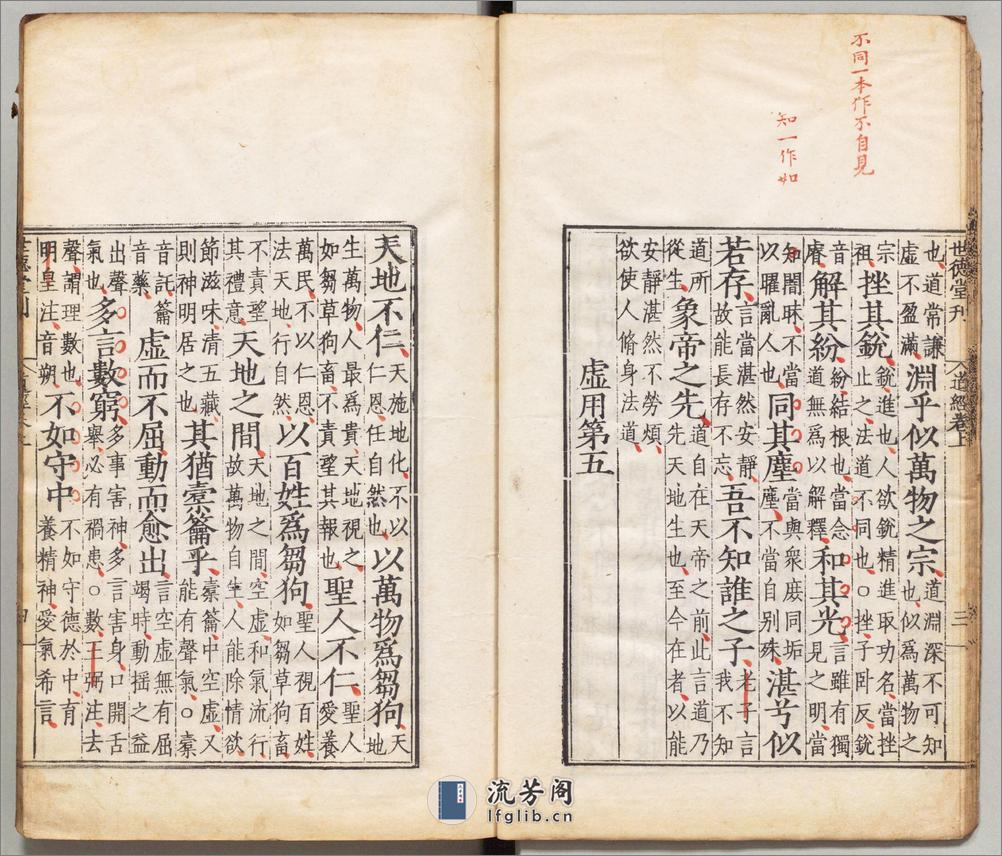 不同一本作不自見
知一作如
世德堂刊 道經卷上 三
也道常謙虛不盈滿淵乎似萬物之宗道淵深不可知也似爲萬物之
宗祖挫其銳銳進也人欲銳精進取功名當挫止之法道不同也○挫子卧反銳
音睿解其紛紛結根也當念道無爲以解釋和其光言雖有獨見之明當
知闇昧不當以曜亂人也同其塵當與衆庶同垢塵不當自别殊湛兮似
若存言當湛然安靜故能長存不忘吾不知誰之子老子言我不知
道所從生象帝之先道自在天帝之前此言道乃先天地生也至今在者以能
安靜湛然不勞煩欲使人脩身法道
虛用第五
天地不仁天施地化不以仁恩任自然也以萬物爲芻狗天地
生萬物人最爲貴天地視之如芻草狗畜不責望其報也聖人不仁聖人愛養
萬民不以仁恩法天地行自然以百姓爲芻狗聖人視百姓如芻草狗畜
不責望其禮意天地之間天地之間空虛和氣流行故萬物自生人能除情欲
節滋味清五藏則神明居之也其猶橐籥乎橐籥中空虛又能有聲氣○橐
音託籥音藥虛而不屈動而愈出言空虛無有屈竭時動搖之益
出聲氣也多言數窮多事害神多言害身口開舌舉必有禍患○數王弼注去
聲謂理數也明皇注音朔不如守中不如守德於中育養精神愛氣希言
流芳阁
lfglib.cn